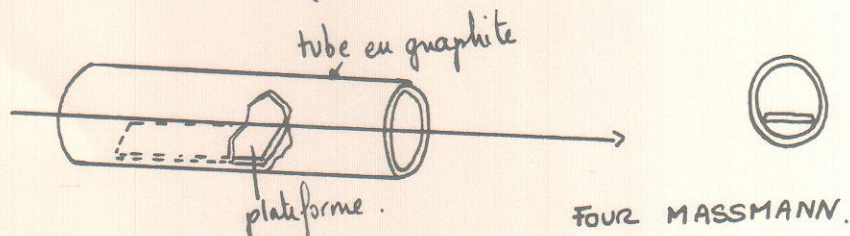 tube en graphite
plateforme.
FOUR MASSMANN.